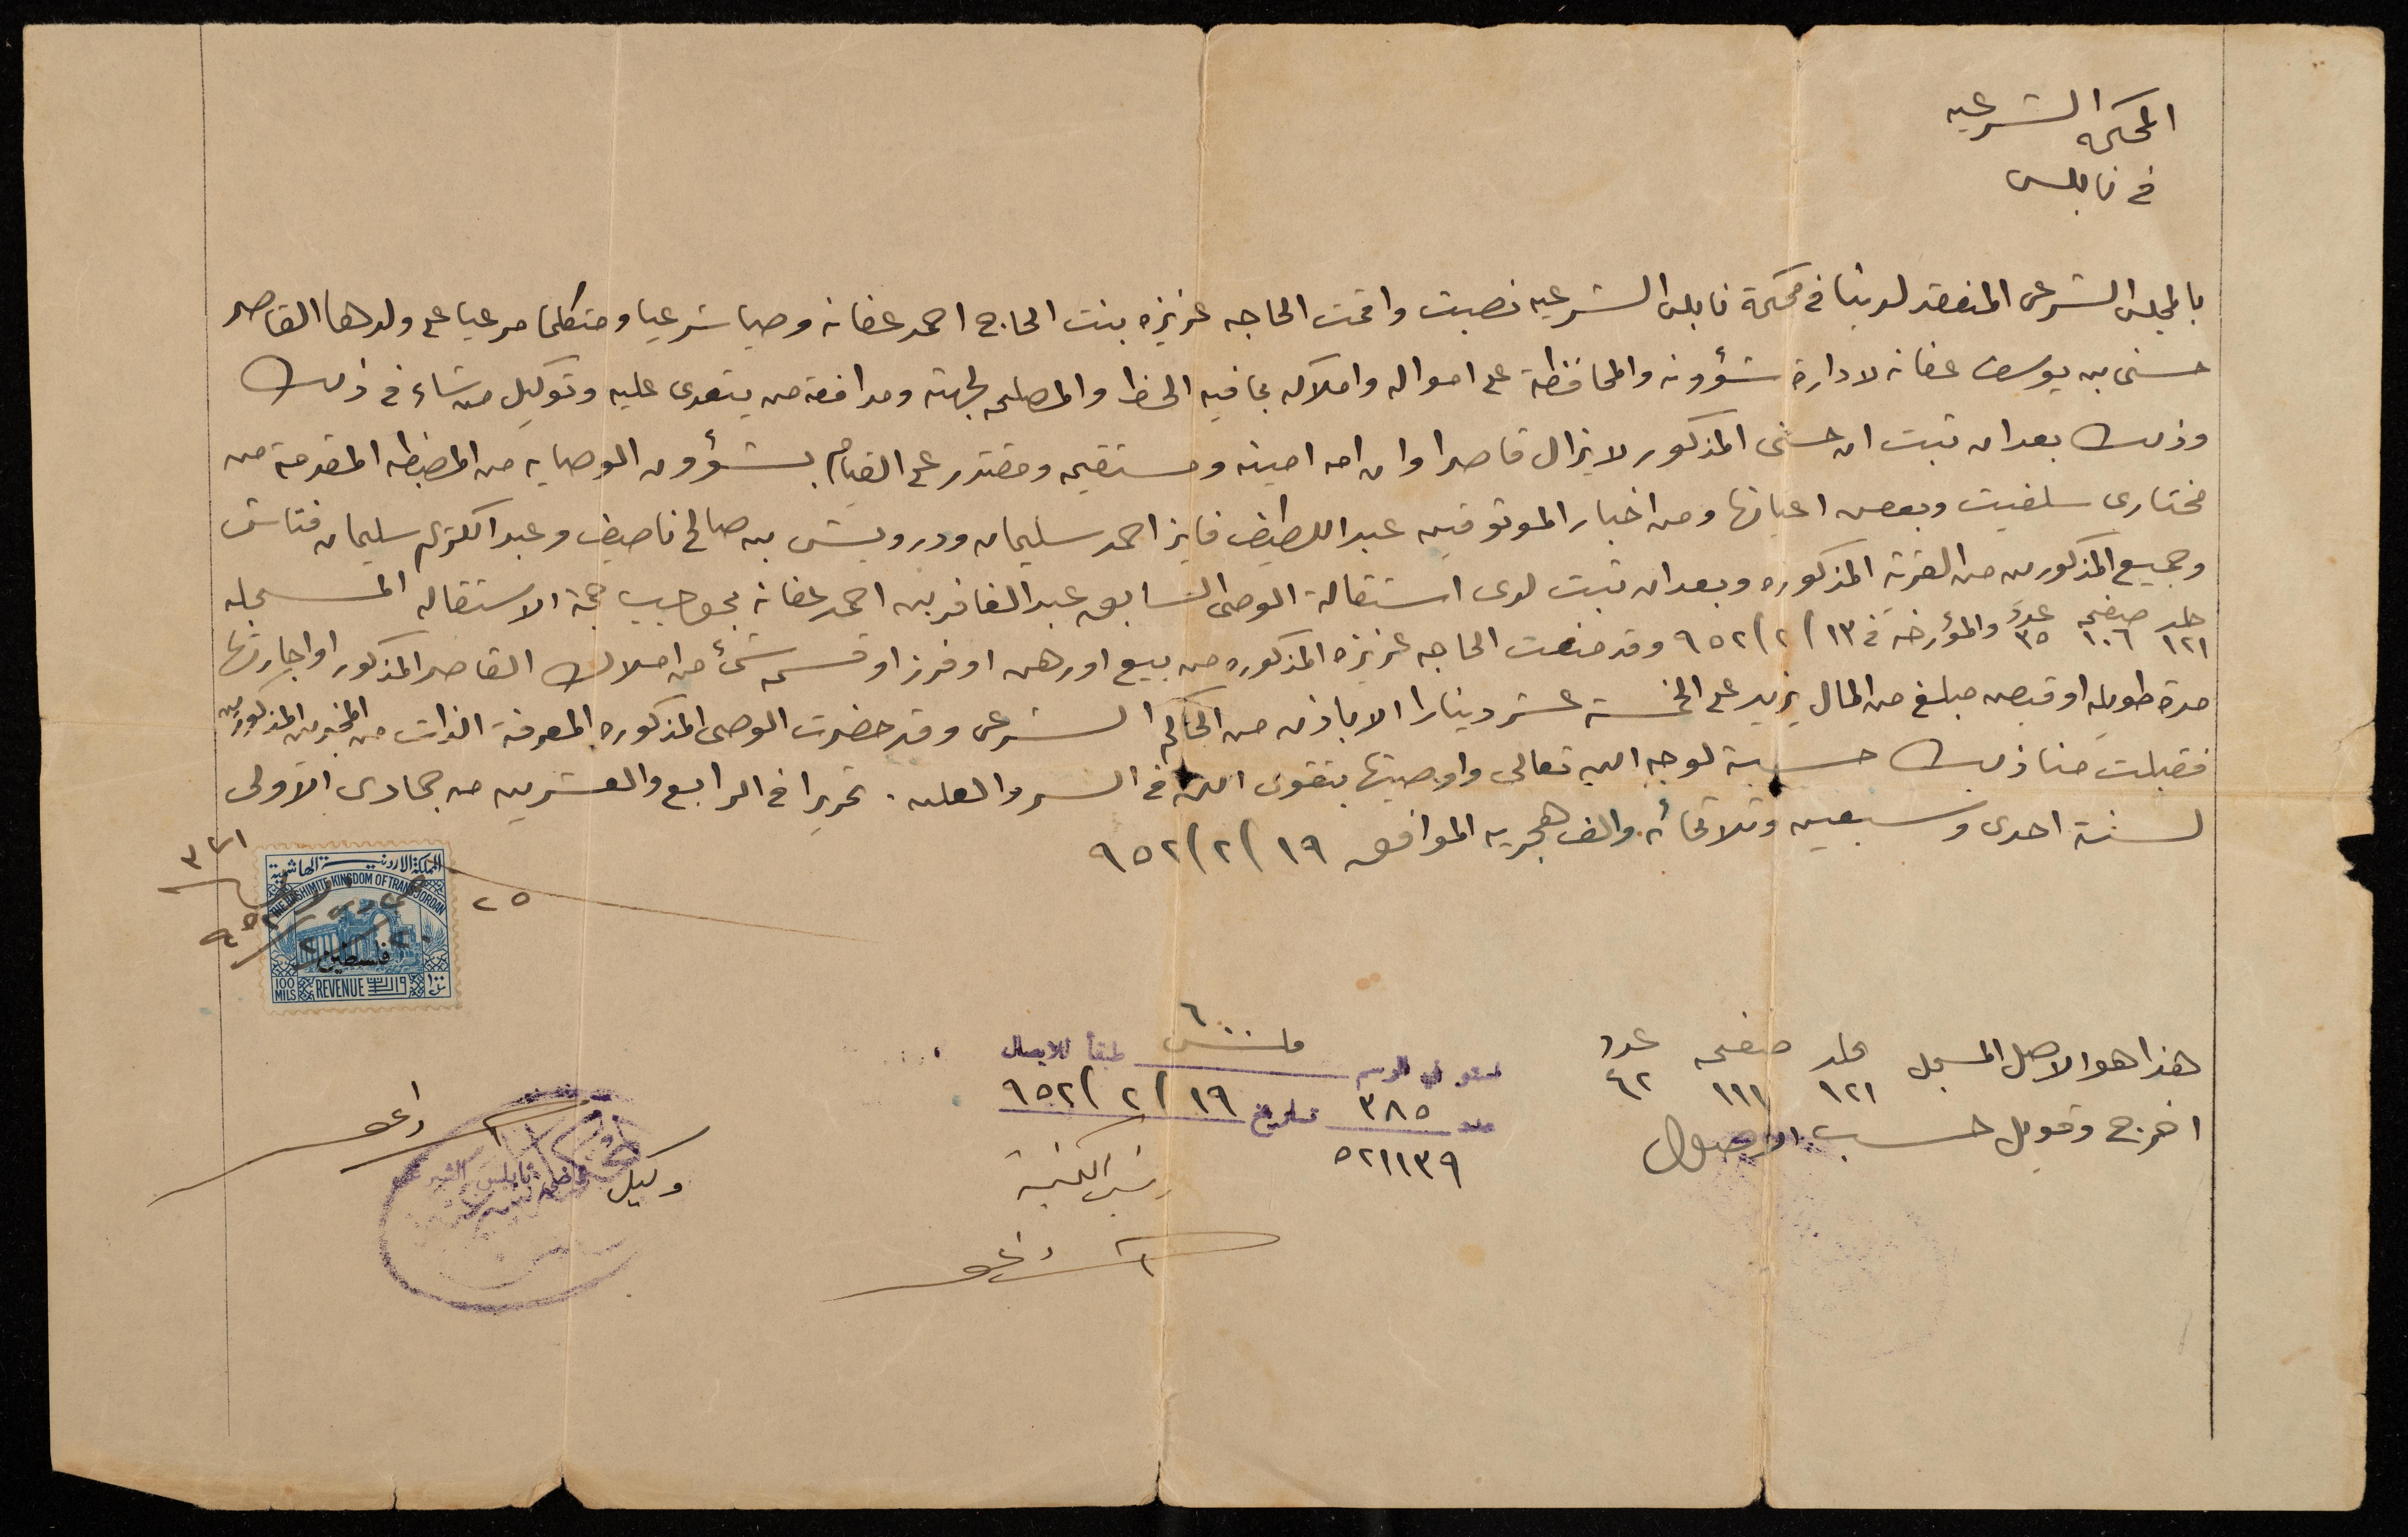 المحكمه الشرعيه
في نابلس
بالمجلس الشرعي المنعقد لدينا في محكمة نابلس الشرعيه نصبت واقمت الحاجه عزيزه بنت الحاج احمد عفانه وصيا شرعيا ومتكلما مرعيا على ولدها القاصر
حسني بن يوسف عفانه لادارة شؤونه والمحافظة على امواله واملاكه بما فيه الحظ والمصلحه لجهته ومدافعة من يتعدى عليه وتوكيل من شاء في ذلك
وذلك بعد ان ثبت ان حسني المذكور لا يزال قاصرا وان امه امينه ومستقيمه ومقتدر على القيام بشؤون الوصايه من المضبطه المقدمة من
مختاري سلفيت وبعض اعيانها ومن اخبار الموثوقين عبد اللطيف فايز احمد سليمان ودرويش بن صالح ناصيف وعبد الكريم سليمان فتاش
وجميع المذكورين من القرية المذكوره وبعد ان ثبت لدى استقالة الوصي السابق عبد الغافر بن احمد عفانه بموجب حجة الاستقاله المسجله
جلد صفحه عدد
١٢١ ١٠٦ ٣٥ والمؤرخة في ١٣/٢/٩٥٢ وقد منعت الحاجه عزيزه المذكوره من بيع او رهن او فرز او قسمه شئ من املاك القاصر المذكور او اجارتها
مدة طويله او قبض مبلغ من المال يزيد على الخمسة عشر دينارا الا باذن من الحاكم الشرعي وقد حضرت الوصي المذكوره المعرفة الذات من المخبرين المذكورين
فقبلت منا ذلك حسبة لوجه الله تعالى واوصيتها بتقوى الله في السر والعلن . تحريرا في الرابع والعشرين من جمادى الاولى
لسنة احدى وسبعين وثلاثمائه والف هجريه الموافق ١٩/٢/٩٥٢
٢٥
٣٧١
٢٠/٢/٩٥٢
المملكة الاردنية الهاشمية
THE HASHIMITE KINGDOM OF TRANSJORDAN
فلسطين
100 MILS REVENUE واردات ١٠٠ مل
هذا هو الاصل المسجل جلد صفحه عدد
١٢١ ١١١ ٤٢
اخرج وقوبل حسب الاصول
٦٠٠ ملش
استوفي الرسم طبقا للايصال
عدد ٣٨٥ تاريخ ١٩/٢/٩٥٢
٥٢١١٣٩
رئيس الكتبة
وكيل قاضي نابلس الشرعي